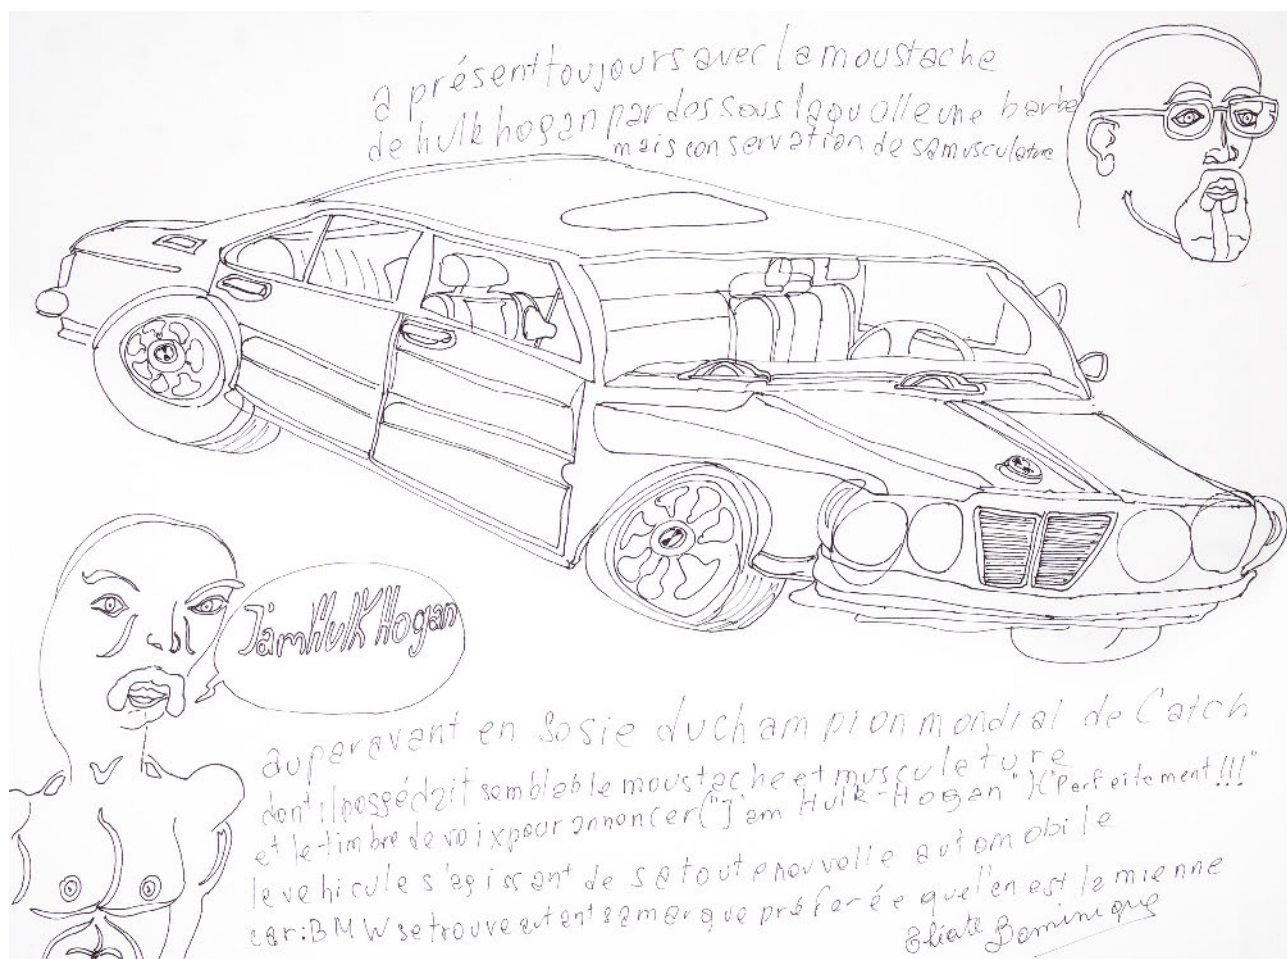 a présent toujours avec la moustache
de hulk hogan par dessous laquelle une barbe
mais conservation de sa musculature
J'am Hulk Hogan
auparavant en Sosie du champion mondial de Catch
dont il possédait semblable moustache et musculature
et le timbre de voix pour annoncer ("J'am Hulk-Hogan") ("Perfeitement !!!"
le vehicule s'agissant de sa toute nouvelle automobile
car: BMW se trouve autant sa marque préférée quel'en est la mienne
Dominique